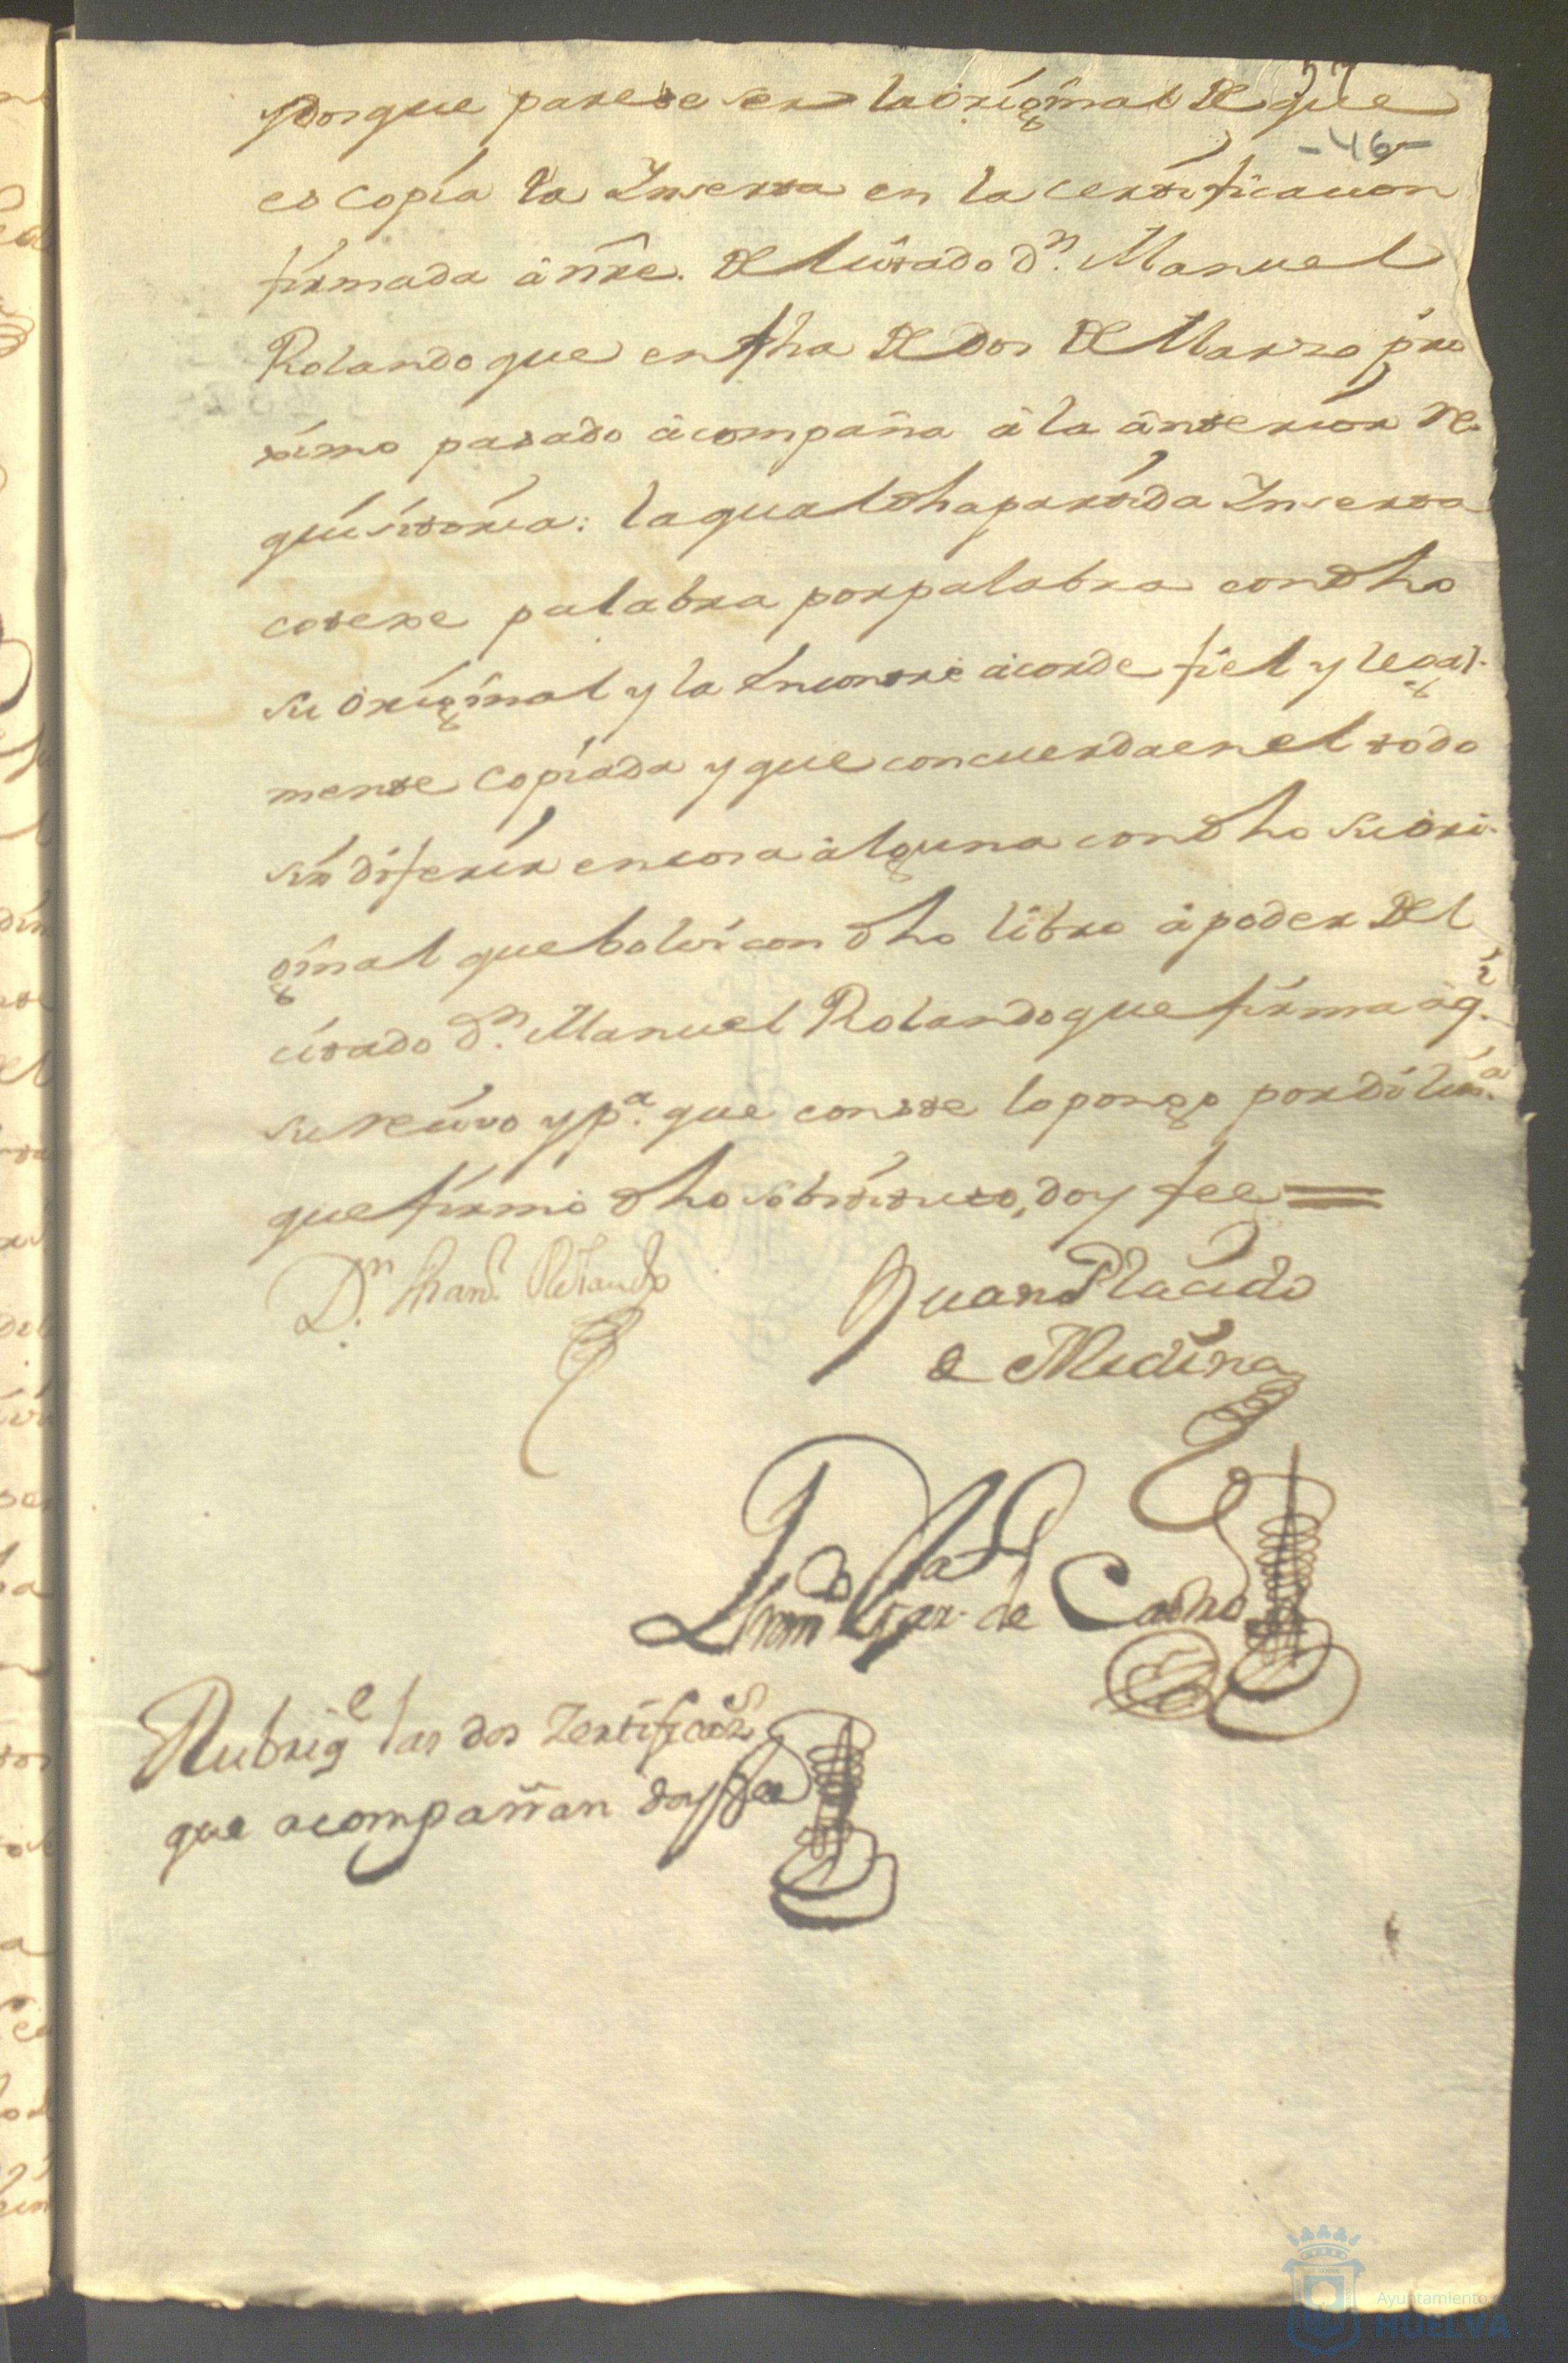 57
yporque parese ser la original de que
-46-
es copia la Inserta en la certificacion
firmada â nre. del citado Dn. Manuel
Rolando que en fha de dos de Marzo pro
ximo pasado acompaña â la ânterior re
quisitoria: la qual dha partida Inserta
coteje palabra por palabra con dho
su original y la encontre acorde fiel y legal-
mente copiada y que concuerda en el todo
sin diferir en cosa alguna con dho su ori-
ginal que bolvi con dho libro â poder del
citado Dn. Manuel Rolando que firma aqi.
su recivo y pa. que conste lo pongo por dilixa.
que firmô dho sobstituto, doy fee =
Dn. Manl. Rolando
Juan Placido
de Medina
de Castro
Rubrigé las dos Zertificacs.
que acompañan doy fee
Ayuntamiento de
HUELVA